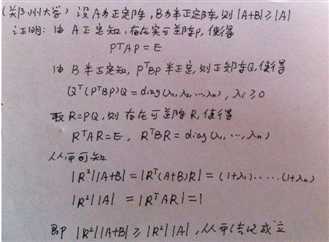 (郑州大学) 设A为正定阵,B为半正定阵,则 |A+B|≥|A|
证明: 由A正定知,存在实可逆阵P,使得
PᵀAP=E
由B半正定知,PᵀBP半正定,则正交阵Q,使得
Qᵀ(PᵀBP)Q=diag(λ₁,λ₂,…,λₙ), λᵢ≥0
取R=PQ,则存在可逆阵R,使得
RᵀAR=E, RᵀBR=diag(λ₁,…,λₙ)
从而可知
|R²||A+B|=|Rᵀ(A+B)R|=(1+λ₁)……(1+λₙ)
|R²||A|=|RᵀAR|=1
即 |R²||A+B|≥|R²||A|,从而结论成立